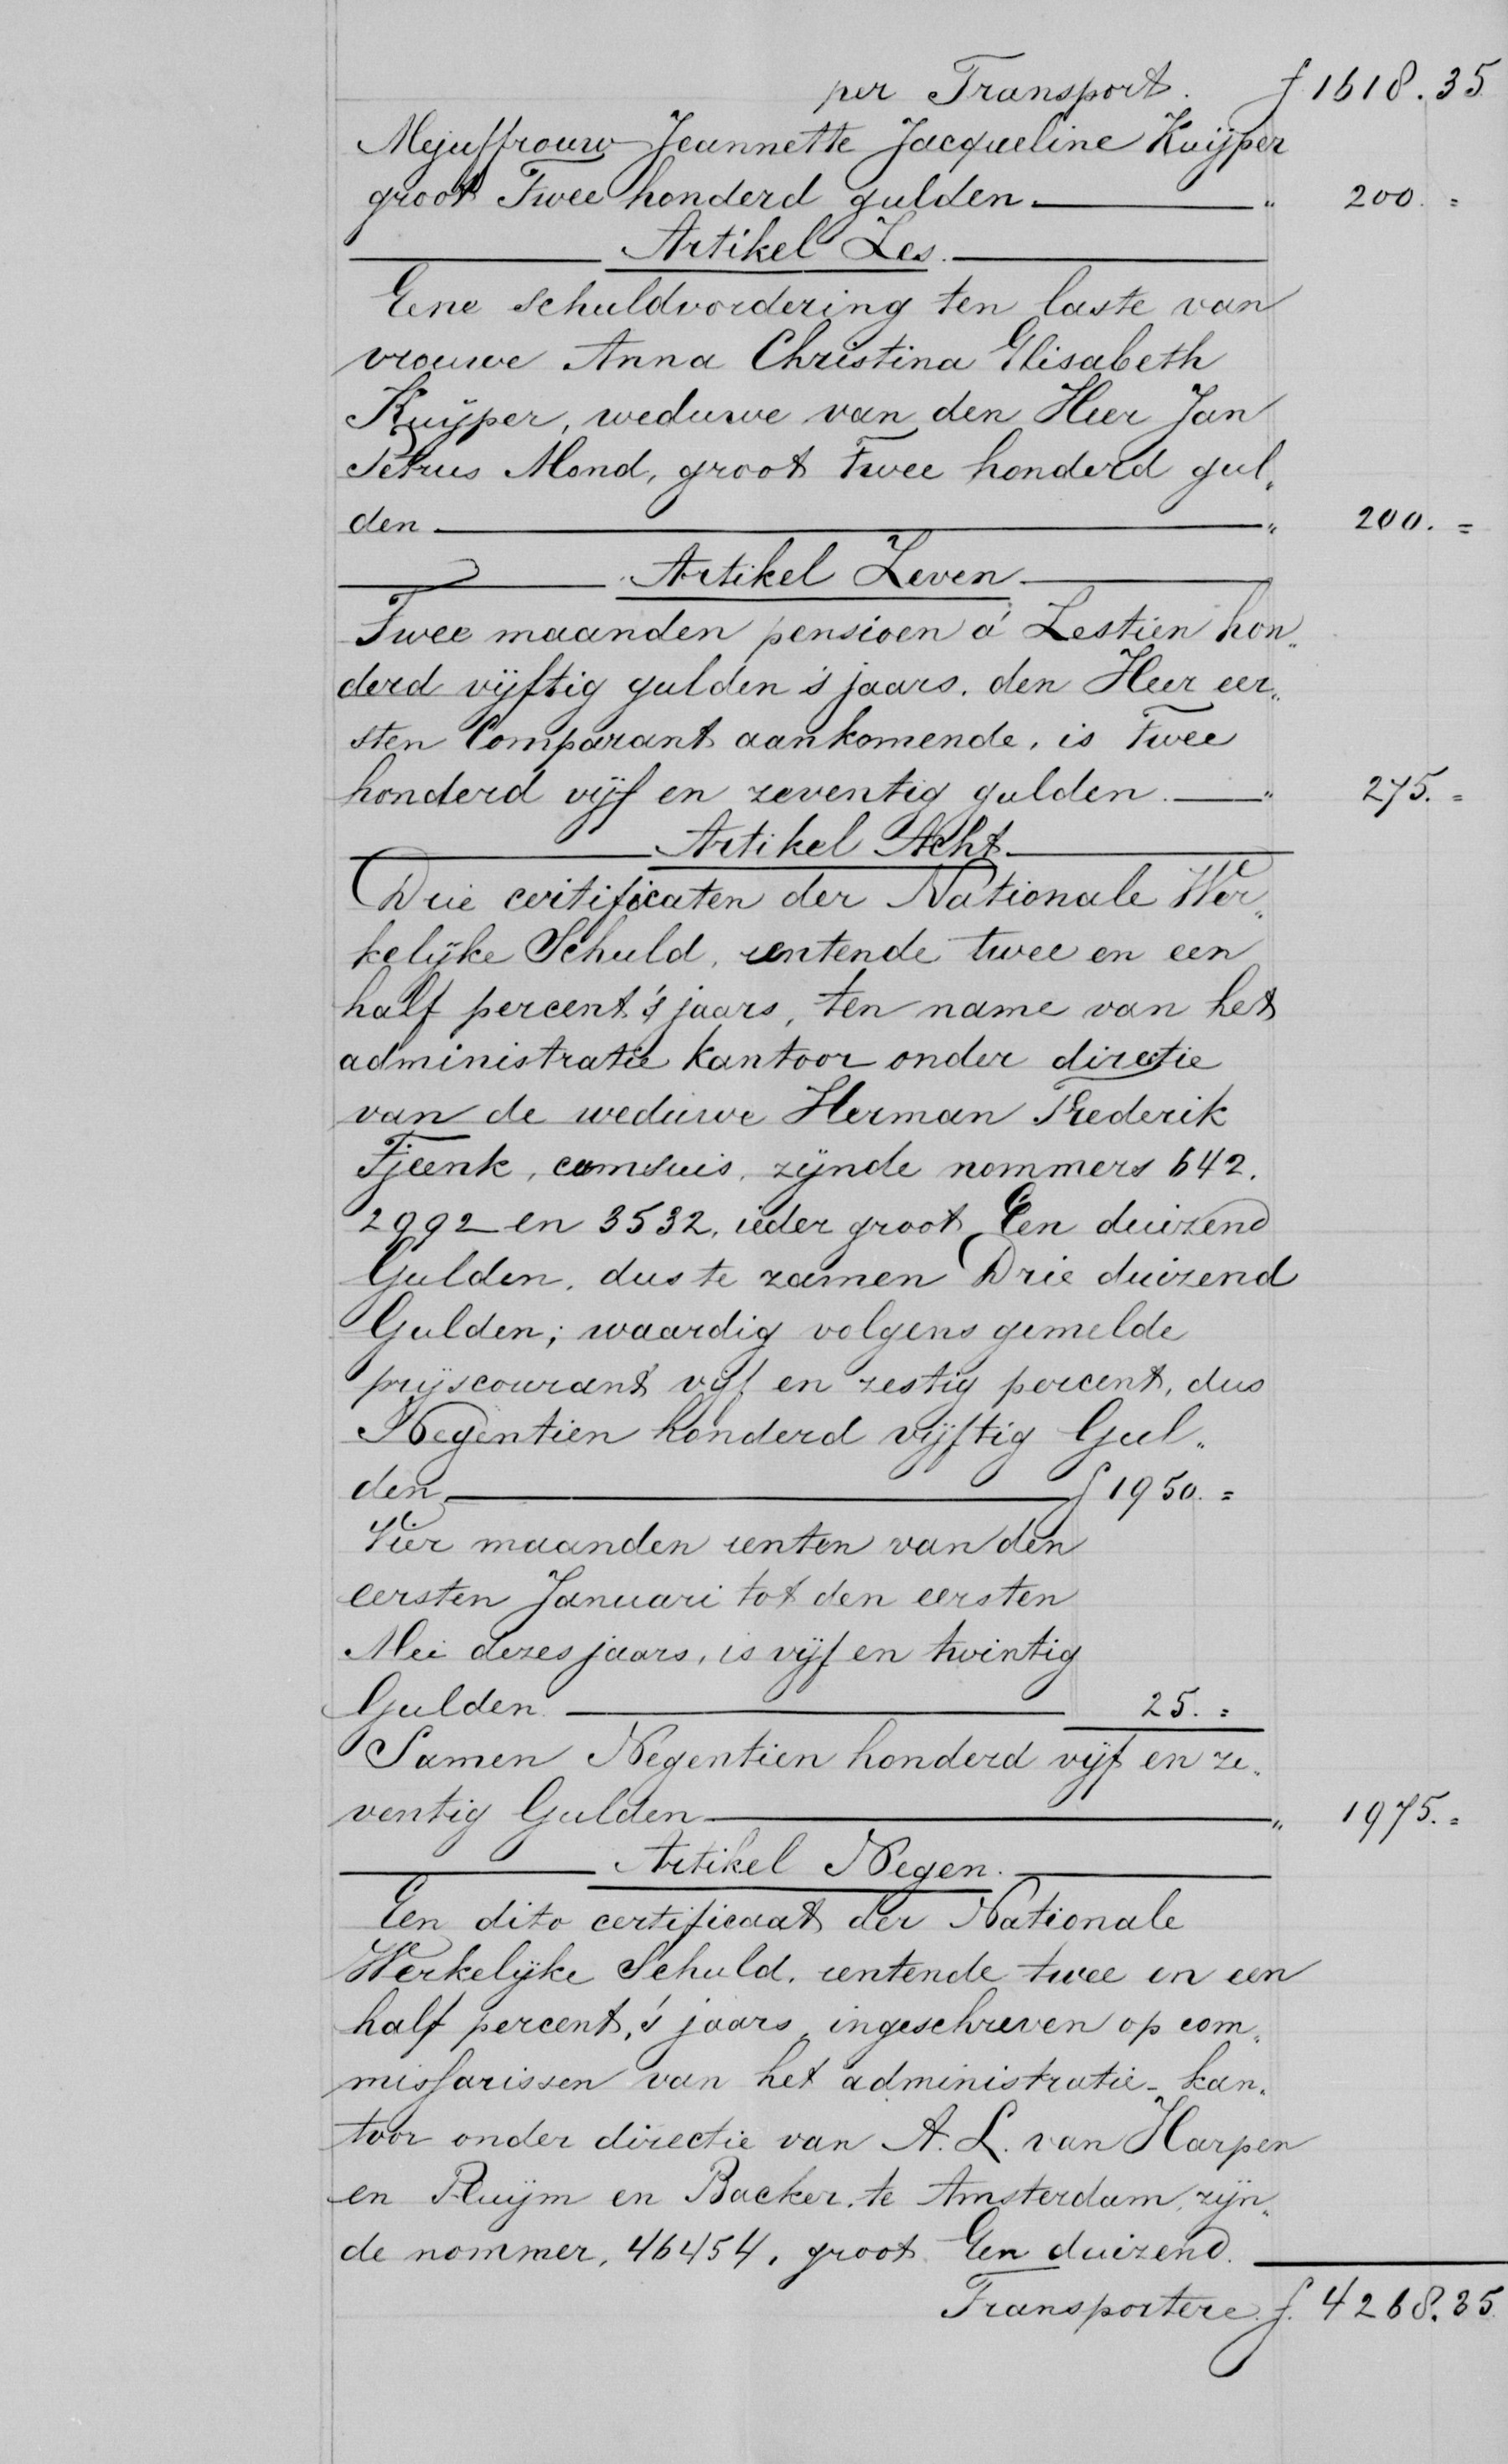 per Transport. f 1618.35
Mejuffrouw Jeannette Jacqueline Kuijper
groot Twee honderd gulden — „ 200. =
Artikel Zes.
Eene schuldvordering ten laste van
vrouwe Anna Christina Elisabeth
Kuijper, weduwe van den Heer Jan
Petrus Mond, groot Twee honderd gul„
den — „ 200. =
Artikel Zeven
Twee maanden pensioen á Zestien hon„
derd vijftig gulden 's jaars. den Heer eer„
sten Comparant aankomende, is Twee
honderd vijf en zeventig gulden. — „ 275. =
Artikel Acht
Drie certificaten der Nationale Wer„
kelijke Schuld, rentende twee en een
half percent 's jaars, ten name van het
administratie kantoor onder directie
van de weduwe Herman Frederik
Tjeenk, cumsuis, zijnde nommers 642.
2992 en 3532, ieder groot Een duizend
Gulden, dus te zamen Drie duizend
Gulden; waardig volgens gemelde
prijscourant vijf en zestig percent, dus
Negentien honderd vijftig Gul„
den — f 1950. =
Vier maanden renten van den
eersten Januari tot den eersten
Mei dezes jaars, is vijf en twintig
Gulden. — 25. =
Samen Negentien honderd vijf en ze„
ventig Gulden — „ 1975. =
Artikel Negen.
Een dito certificaat der Nationale
Werkelijke Schuld, rentende twee en een
half percent, 's jaars, ingeschreven op com„
missarissen van het administratie-kan„
toor onder directie van A. L. van Harpen
en Pluijm en Backer, te Amsterdam, zijn„
de nommer, 46454, groot Een duizend.
Transportere f. 4268.35